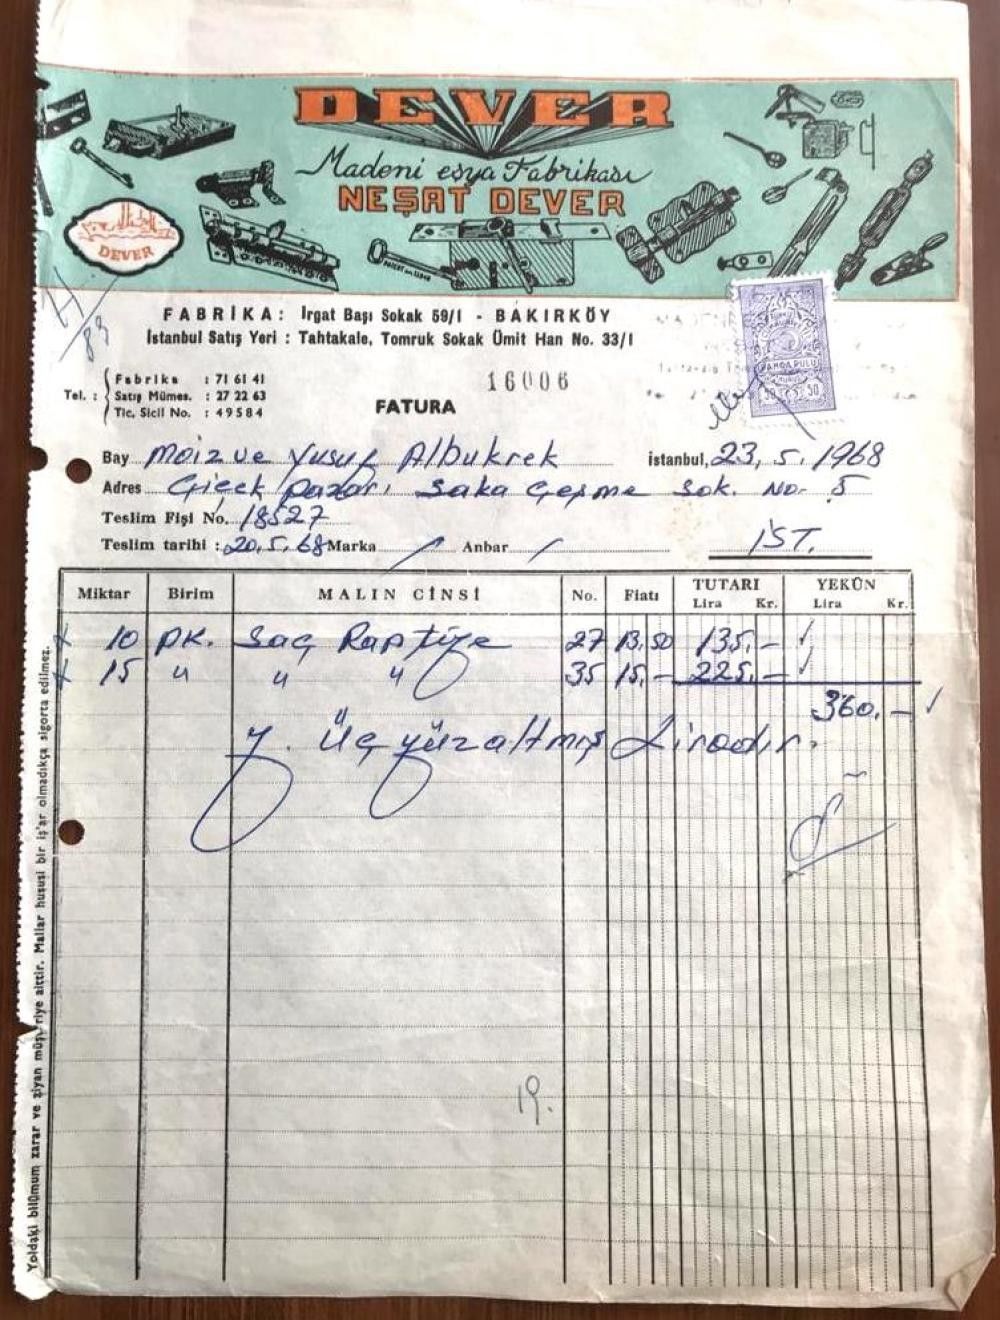 DEVER
Madeni eşya Fabrikası
NEŞAT DEVER
DEVER
FABRİKA: Irgat Başı Sokak 59/1 - BAKIRKÖY
İstanbul Satış Yeri : Tahtakale, Tomruk Sokak Ümit Han No. 33/1
Tel. : Fabrika : 71 61 41
Satış Mümes. : 27 22 63
Tic. Sicil No. : 49584
16006
FATURA
DAMGA PULU
Bay Moiz ve Yusuf Albukrek İstanbul, 23.5.1968
Adres Çiçek Pazarı Saka Çeşme Sok. No. 5
Teslim Fişi No. 18527
Teslim tarihi : 20.5.68 Marka / Anbar / İST.
Miktar Birim MALIN CİNSİ No. Fiatı TUTARI YEKÛN
Lira Kr. Lira Kr.
10 pk. Saç Raptiye 27 13.50 135.-
15 " " " 35 15.- 225.-
360.-
Y. Üçyüzaltmış Liradır.
19.
Yoldaki bilûmum zarar ve ziyan müşteriye aittir. Mallar hususi bir iş'ar olmadıkça sigorta edilmez.